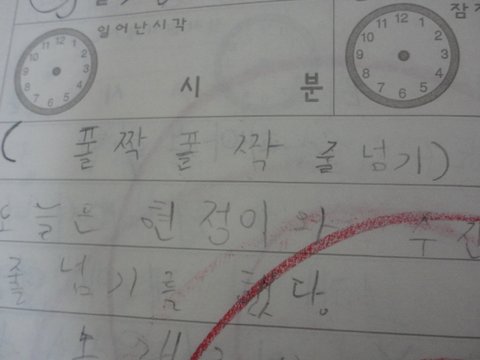 일어난시각
시 분
잠
12 1 2 3 4 5 6 7 8 9 10 11
12 1 2 3 4 5 6 7 8 9 10 11
(풀짝 풀짝 줄넘기)
오늘은 현정이와 수진
줄넘기를 했다.
노래